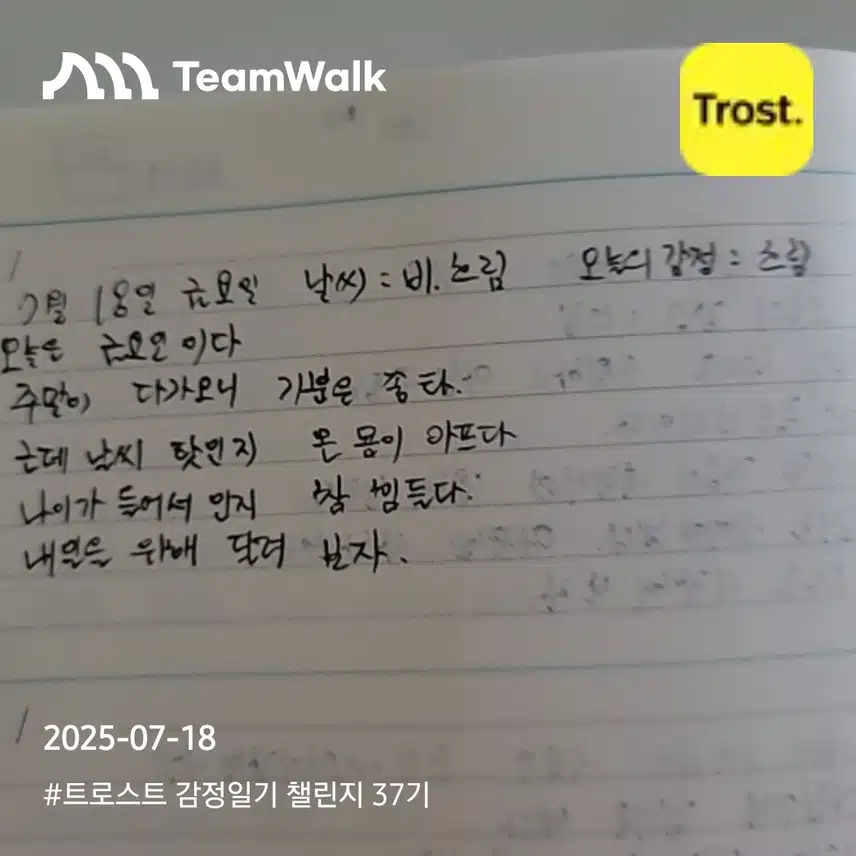 TeamWalk
Trost.
7월 18일 금요일 날씨 = 비. 흐림 오늘의 감정 = 흐림
오늘은 금요일이다
주말이 다가오니 기분은 좋타.
근데 날씨 탓인지 온 몸이 아프다
나이가 들어서 인지 참 힘들다.
내일을 위해 달려 보자.
2025-07-18
#트로스트 감정일기 챌린지 37기